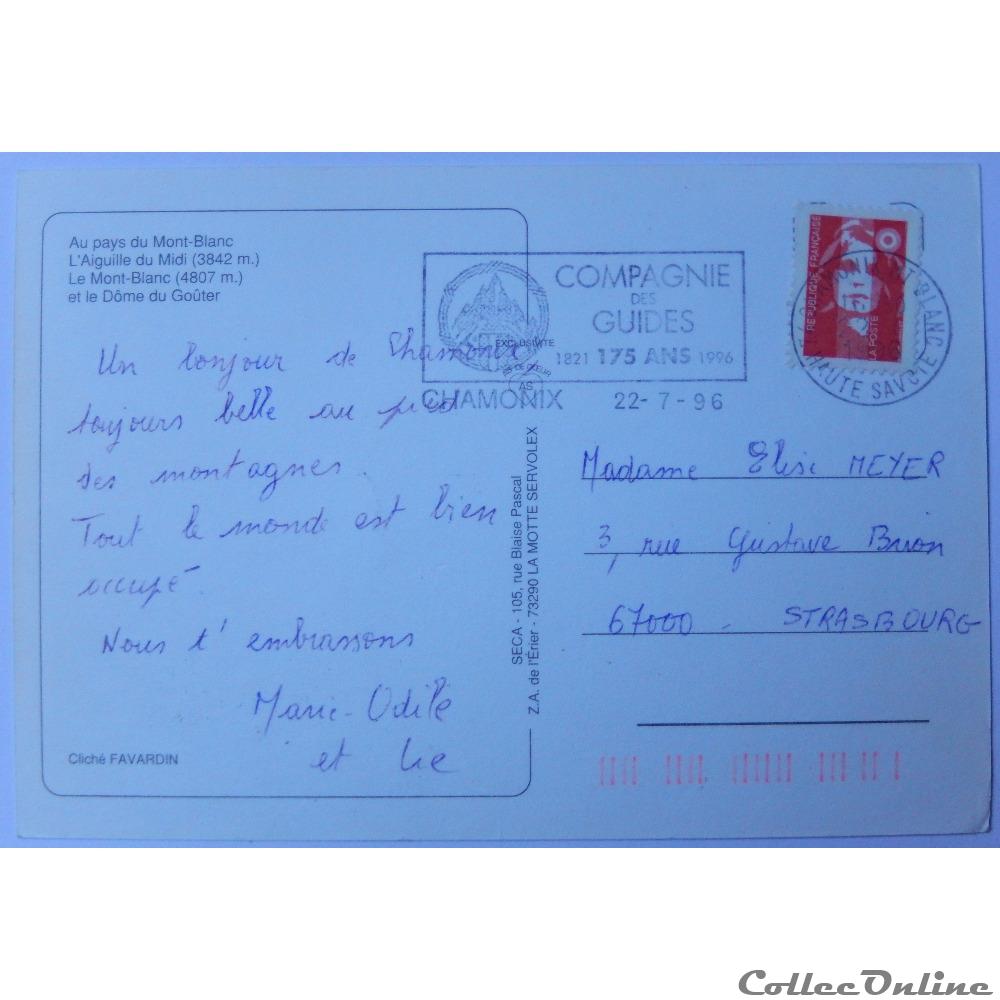 Au pays du Mont-Blanc
L'Aiguille du Midi (3842 m.)
Le Mont-Blanc (4807 m.)
et le Dôme du Goûter
Un bonjour de Chamonix,
toujours belle au pied
des montagnes.
Tout le monde est bien
occupé.
Nous t'embrassons
Marie-Odile
et
Cliché FAVARDIN
EXCLUSIVITE
AS
SECA - 105, rue Blaise Pascal
Z.A. de l'Érier - 73290 LA MOTTE SERVOLEX
COMPAGNIE
DES
GUIDES
1821 175 ANS 1996
CHAMONIX 22-7-96
REPUBLIQUE FRANÇAISE
LA POSTE
MONT BLANC
HAUTE SAVOIE
Madame Elise MEYER
3, rue Gustave Brion
67000 - STRASBOURG
CollecOnline